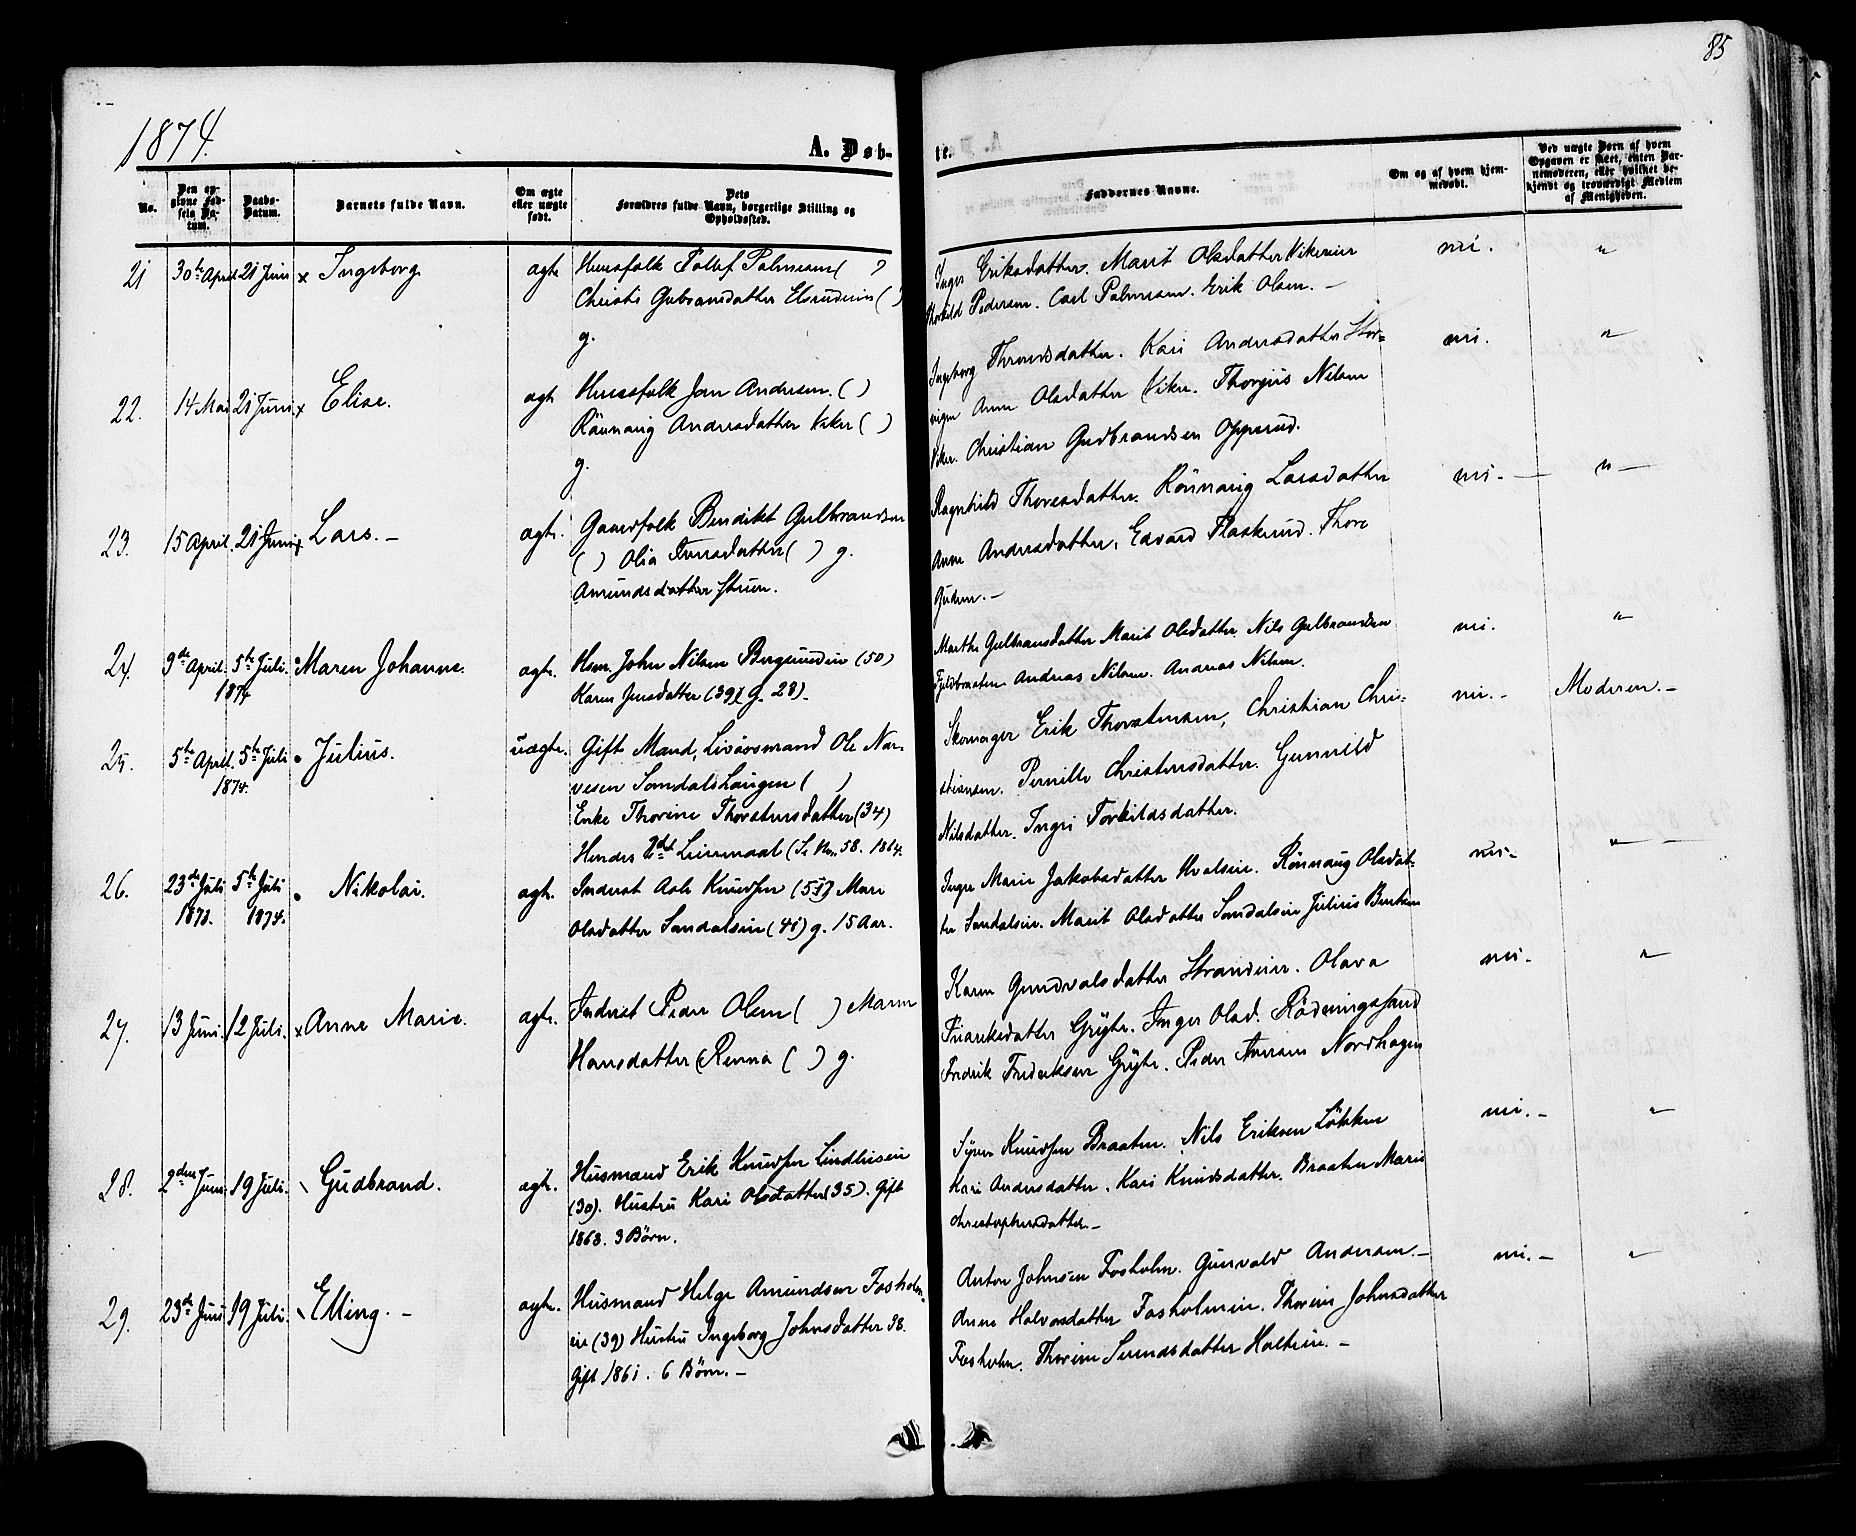 85
1874.
A. Døb-
te.
No.
Den opgivne Fødsels Datum.
Daabs-Datum.
Barnets fulde Navn.
Om ægte eller uægte født.
Dets Forældres fulde Navn, borgerlige Stilling og Opholdssted.
Faddernes Navne.
Om og af hvem hjemmedøbt.
Ved uægte Børn af hvem Opgaven er skeet, enten Barnemoderen, eller hvilket bekjendt og troværdigt Medlem af Menigheden.
21 30te April 21 Juni x Ingeborg ægte Huusfolk Tollef Palmesen ( )
Christi Gulbransdatter Elsrudeiet ( )
g.
Inger Eriksdatter. Marit Olsdatter Vikereie
Thorkild Pedersen. Carl Palmesen. Erik Olsen. –
nei. "
22. 14 Mai 21 Juni x Elise. ægte Huusfolk Jon Andersen. ( )
Rönnaug Andersdatter Viker ( )
g.
Ingeborg Throndsdatter. Kari Andersdatter Stor-
vigen Anne Olsdatter Viker. Thorgius Nilsen
Viker. Christian Gudbrandsen Opperud.
nei. "
23. 15 April. 21 Juni x Lars. – ægte. Gaardfolk Bendikt Gulbrandsen
( ) Olia Iversdatter ( ) g.
Amundsdatter Struen.
Ragnhild Thoresdatter. Rönnaug Larsdatter
Anne Andersdatter, Edvard Flaskerud. Thore
Gudm. –
nei. – " –
24. 9de April. 5te Juli. Maren Johanne. ægte. Hsm. John Nilsen Bergsundeie (50)
1874
Karen Jensdatter (39) g. 28).
Marthe Gulbransdatter Marit Olsdatter. Nils Gulbrandsen
Fjeldbraaten Andreas Nilsen. Andreas Nilsen.
nei. "
25. 5te April. 5te Juli Julius. uægte. Gift Mand, Livøvsmand Ole Nar-
1874.
vesen Somdalshaugen ( )
Enke Thorine Thorstensdatter (34)
Hendes 2det Leiermaal (Se No. 58. 1864.
Skomager Erik Thorstensen, Christian Chri-
stiansen. Pernille Christensdatter. Gunnild
Nilsdatter. Ingri Torkildsdatter.
nei. – Moderen. –
26. 23de Juli 5te Juli Nikolai. ægte. Inderst Asle Knudsen (55) Mari
1873. 1874.
Olsdatter Sandalseie (41) g. 15 Aar.
Inger Marie Jakobsdatter Hvalseie. Rönnaug Olsdat-
ter Sandalseie. Marit Olsdatter Somdalseie Julius Bentsen
nei. – " –
27. 13 Juni. 12 Juli. x Anne Marie. ægte. Inderst Peder Olsen ( ) Maren
Hansdatter Renna ( ) g.
Karen Gundvalsdatter Strandeie. Olava
Friderksdatter Gryte. Inger Olsd. Rödningssand
Fridrik Frideriksen Gryte. Peder Iversen Nordhagen
nei. – "
28. 2den Juni 19 Juli. Gudbrand. ægte. Husmand Erik Knudsen Lindlieeie
(30). Hustru Kari Olsdatter (35). Gift
1863. 3 Børn.
Syver Knudsen Braaten. Nils Eriksen Løkken
Kari Andersdatter. Kari Knudsdatter. Braaten Marie
Christophersdatter. –
nei. – "
29. 23de Juni 19 Juli Elling. – ægte. Husmand Helge Amundsen Fosholm-
eie (39) Hustru Ingeborg Johnsdatter 38.
Gift 1861. 6 Børn. –
Anton Johnsen Fosholm. Gunvald Andersen. –
Anne Halvorsdatter Fosholmeie. Thorine Johnsdatter
Fosholm. Thorine Svendsdatter Holteeie. –
nei. – "